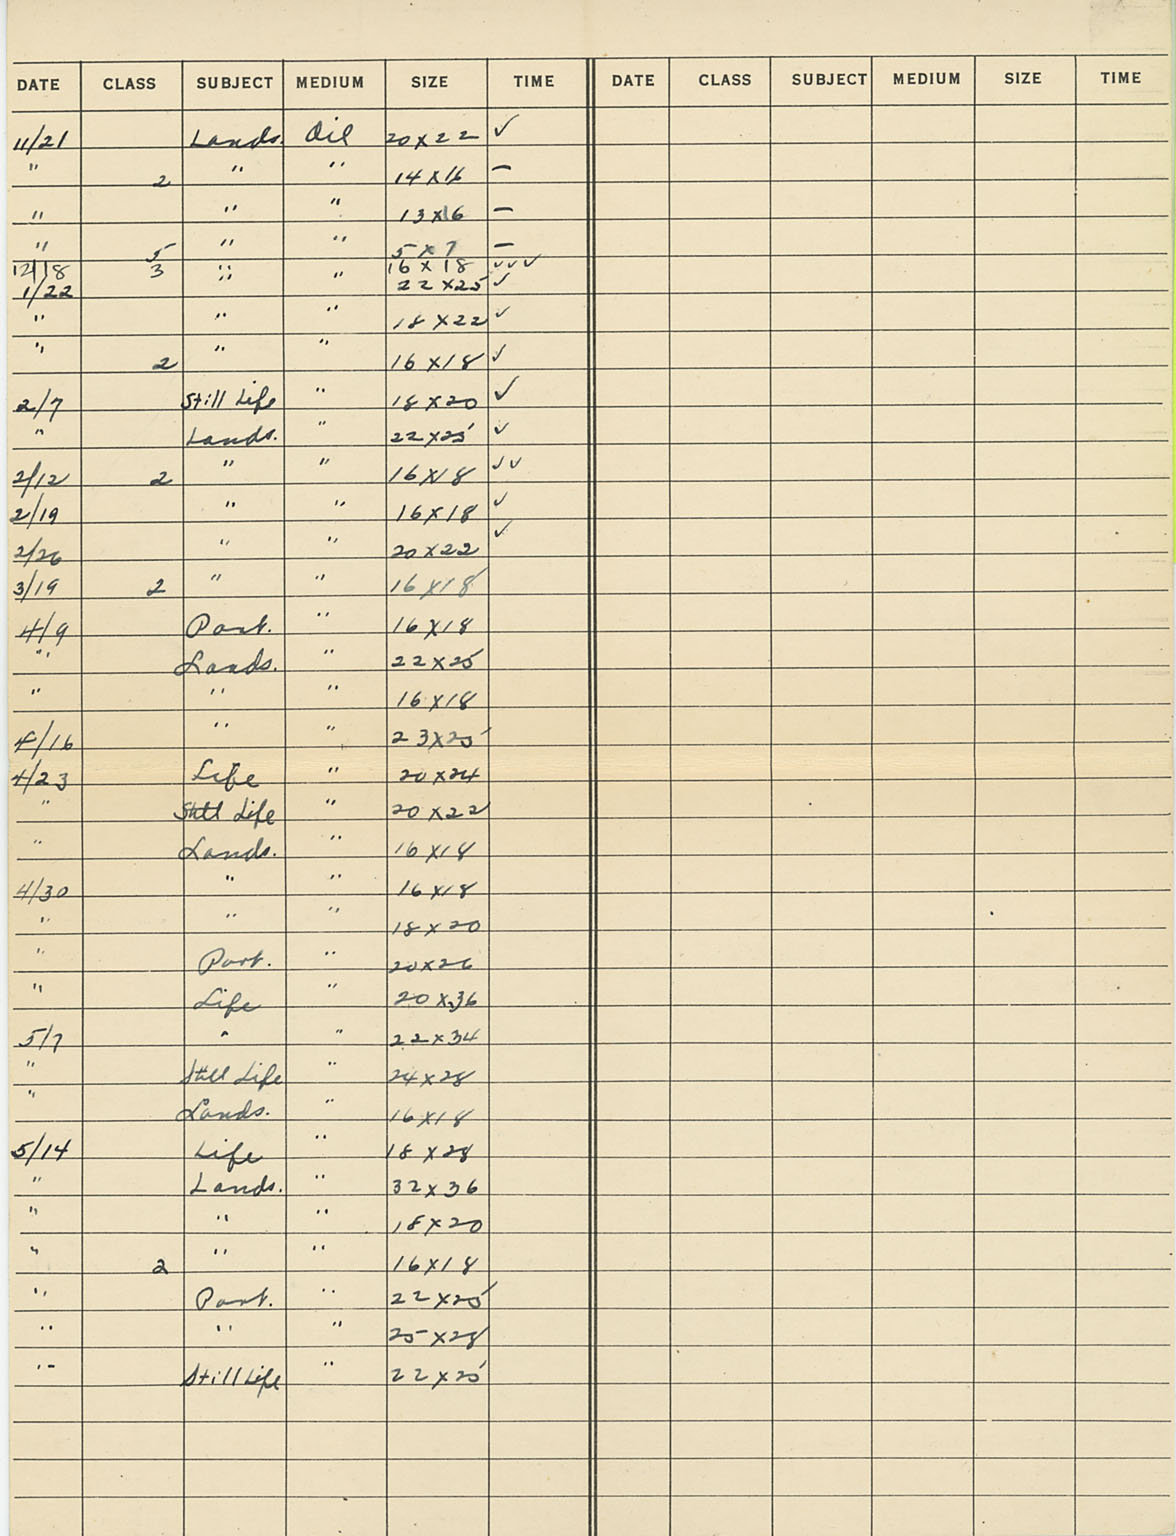 DATE CLASS SUBJECT MEDIUM SIZE TIME DATE CLASS SUBJECT MEDIUM SIZE TIME
11/21 Lands. Oil 20 x 22 ✓
" 2 " " 14 x 16 —
" " " 13 x 16 —
" 5 " " 5 x 7 —
12/18 3 " " 16 x 18 ✓✓✓
1/22 " 22 x 25 ✓
" " " 18 x 22 ✓
" 2 " " 16 x 18 ✓
2/7 Still Life " 18 x 20 ✓
" Lands. " 22 x 25 ✓
2/12 2 " " 16 x 18 ✓✓
2/19 " " 16 x 18 ✓
2/26 " " 20 x 22 ✓
3/19 2 " " 16 x 18
4/9 Port. " 16 x 18
" Lands. " 22 x 25
" " " 16 x 18
4/16 " " 23 x 25
4/23 Life " 20 x 24
" Still Life " 20 x 22
" Lands. " 16 x 18
4/30 " " 16 x 18
" " " 18 x 20
" Port. " 20 x 26
" Life " 20 x 36
5/7 " " 22 x 34
" Still Life " 24 x 28
" Lands. " 16 x 18
5/14 Life " 18 x 28
" Lands. " 32 x 36
" " " 18 x 20
" 2 " " 16 x 18
" Port. " 22 x 25
" " " 25 x 28
" Still Life " 22 x 25